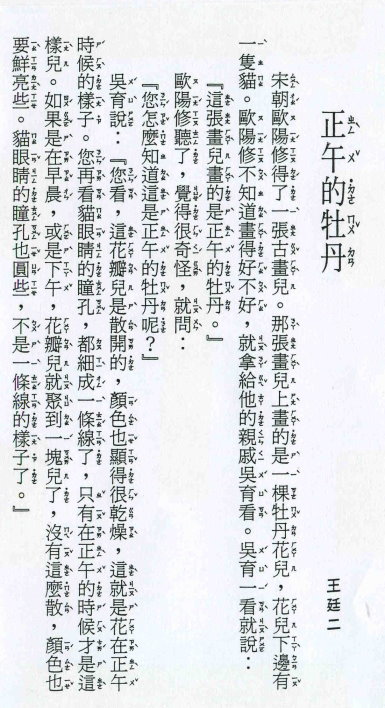 正午的牡丹
王廷二
宋朝歐陽修得了一張古畫兒。那張畫兒上畫的是一棵牡丹花兒，花兒下邊有
一隻貓。歐陽修不知道畫得好不好，就拿給他的親戚吳育看。吳育一看就說：
『這張畫兒畫的是正午的牡丹。』
歐陽修聽了，覺得很奇怪，就問：
『您怎麼知道這是正午的牡丹呢？』
吳育說：『您看，這花瓣兒是散開的，顏色也顯得很乾燥，這就是花在正午
時候的樣子。您再看貓眼睛的瞳孔，都細成一條線了，只有在正午的時候才是這
樣兒。如果是在早晨，或是下午，花瓣兒就聚到一塊兒了，沒有這麼散，顏色也
要鮮亮些。貓眼睛的瞳孔也圓些，不是一條線的樣子了。』